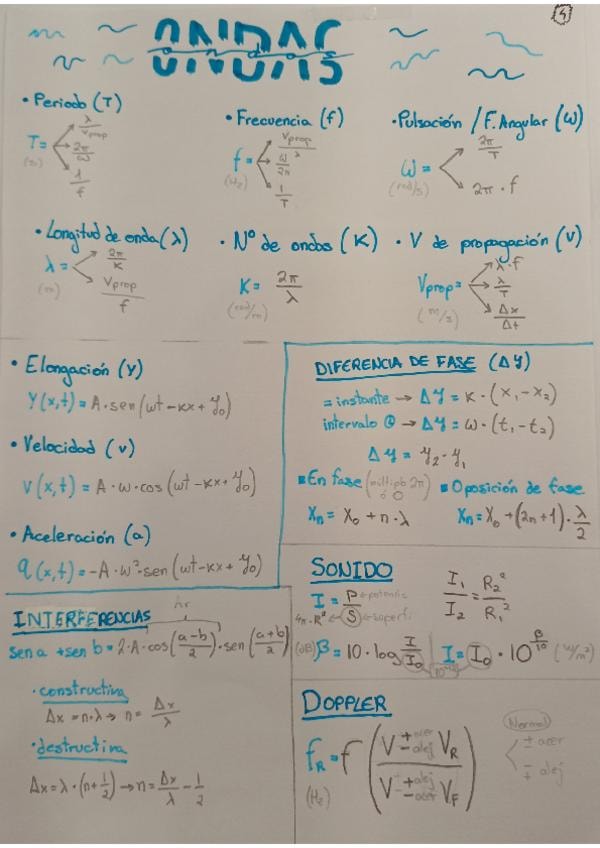 4
ONDAS
ondas
• Periodo (T)
T = λ/Vprop
2π/ω
1/f
(s)
• Frecuencia (f)
f = Vprop/λ
ω/2π
1/T
(Hz)
• Pulsación / F. Angular (ω)
ω = 2π/T
2π · f
(rad/s)
• Longitud de onda (λ)
λ = 2π/K
Vprop/f
(m)
• Nº de ondas (K)
K = 2π/λ
(rad/m)
• V de propagación (V)
Vprop = λ · f
λ/T
Δx/Δt
(m/s)
• Elongación (y)
Y(x,t) = A · sen(ωt - kx + φ₀)
• Velocidad (v)
V(x,t) = A · ω · cos(ωt - kx + φ₀)
• Aceleración (a)
a(x,t) = -A · ω² · sen(ωt - kx + φ₀)
DIFERENCIA DE FASE (Δφ)
= instante → Δφ = K · (x₁ - x₂)
intervalo → Δφ = ω · (t₁ - t₂)
Δφ = φ₂ - φ₁
▪ En fase (múltiplo 2π ó 0)
Xn = X₀ + n · λ
▪ Oposición de fase
Xn = X₀ + (2n+1) · λ/2
INTERFERENCIAS
sen a + sen b = 2 · A · cos((a-b)/2) · sen((a+b)/2)
• constructiva
Δx = n · λ → n = Δx/λ
• destructiva
Δx = λ · (n + 1/2) → n = Δx/λ - 1/2
SONIDO
I = P/S
← potencia
4π · R² ← S → superfi
I₁/I₂ = R₂²/R₁²
(dB) β = 10 · log I/I₀
I = I₀ · 10^(β/10) (W/m²)
DOPPLER
f_R = f ((V ± acer alej V_R)/(V ± alej acer V_F))
(Hz)
Normal
± acer
∓ alej